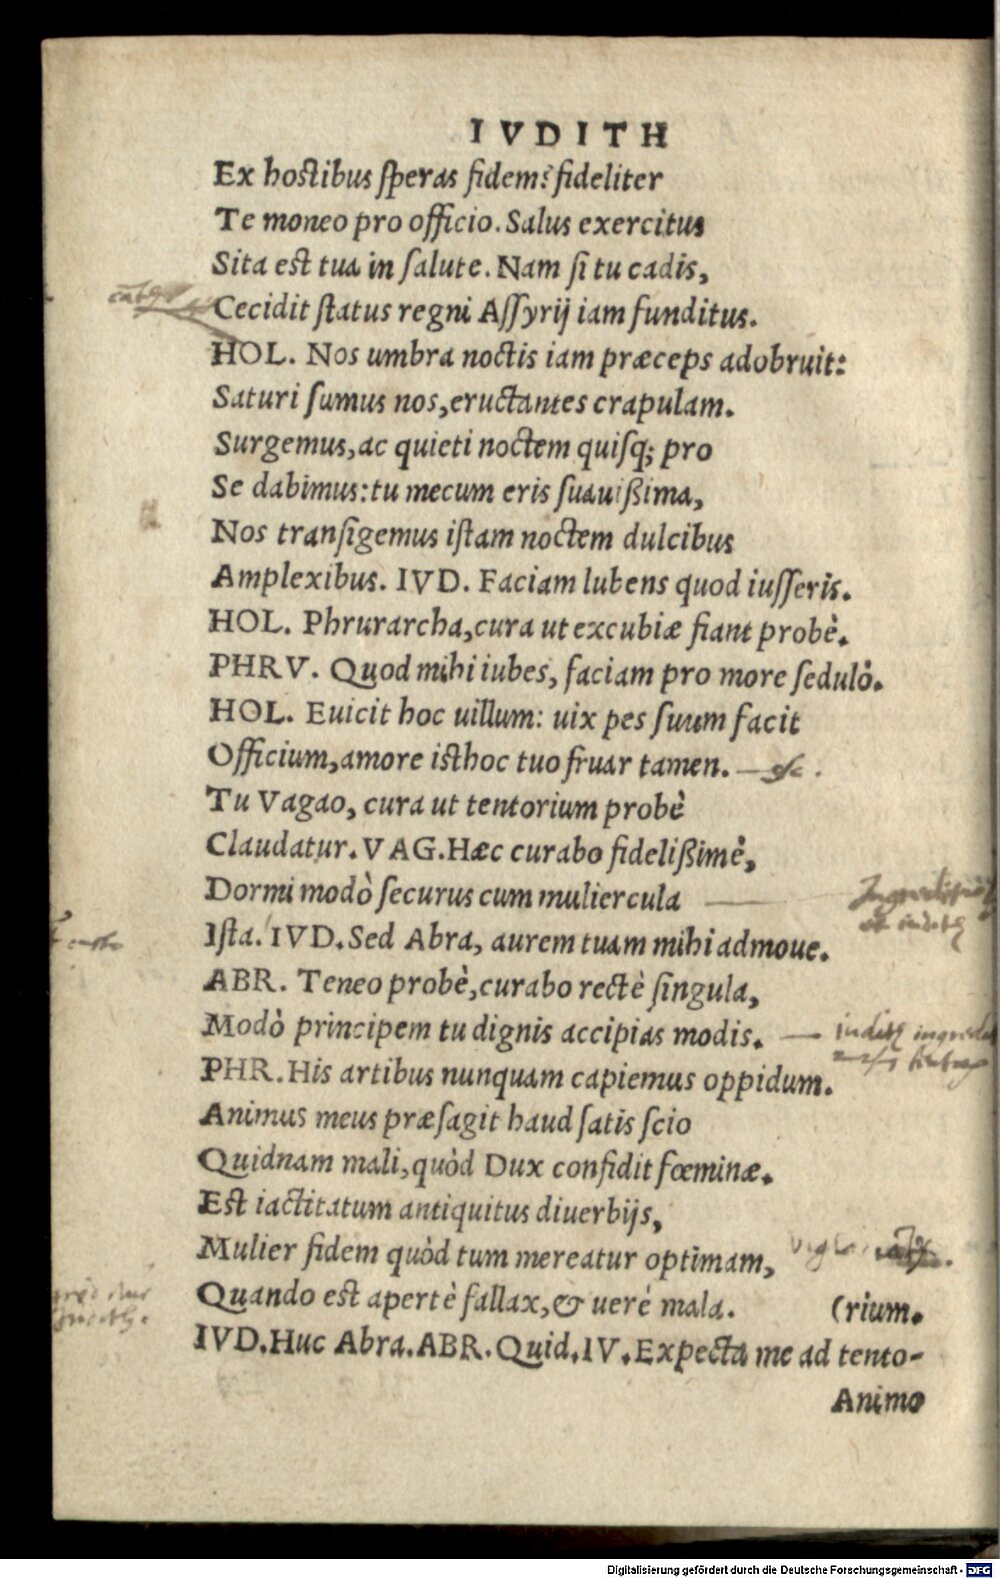 IVDITH
Ex hostibus speras fidem? fideliter
Te moneo pro officio. Salus exercitus
Sita est tua in salute. Nam si tu cadis,
Cecidit status regni Assyrij iam funditus.
HOL. Nos umbra noctis iam præceps adobruit:
Saturi sumus nos, eructantes crapulam.
Surgemus, ac quieti noctem quisq; pro
Se dabimus: tu mecum eris suauißima,
Nos transigemus istam noctem dulcibus
Amplexibus. IVD. Faciam lubens quod iusseris.
HOL. Phrurarcha, cura ut excubiæ fiant probè.
PHRV. Quod mihi iubes, faciam pro more sedulò.
HOL. Euicit hoc uillum: uix pes suum facit
Officium, amore isthoc tuo fruar tamen.
Tu Vagao, cura ut tentorium probè
Claudatur. VAG. Hæc curabo fidelißimè,
Dormi modò securus cum muliercula
Ista. IVD. Sed Abra, aurem tuam mihi admoue.
ABR. Teneo probè, curabo rectè singula,
Modò principem tu dignis accipias modis.
PHR. His artibus nunquam capiemus oppidum.
Animus meus præsagit haud satis scio
Quidnam mali, quòd Dux confidit fœminæ.
Est iactitatum antiquitus diuerbijs,
Mulier fidem quòd tum mereatur optimam,
Quando est apertè fallax, & uerè mala. (rium.
IVD. Huc Abra. ABR. Quid. IV. Expecta me ad tento-
Animo
Digitalisierung gefördert durch die Deutsche Forschungsgemeinschaft - DFG